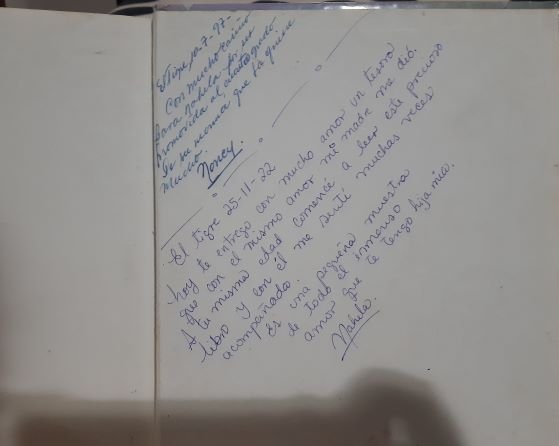 El Tigre 20-7-97-
Con mucho cariño
para Nahela por ser
promovida al cuarto grado
de su mamá que la quiere
mucho.
Noncy.
El tigre 25-11-22
hoy te entrego con mucho amor un tesoro
que con el mismo amor mi madre me dió.
A tu misma edad comencé a leer este precioso
libro y con él me sentí muchas veces
acompañada.
Es una pequeña muestra
de todo el inmenso
amor que te tengo hija mía.
Nahela.